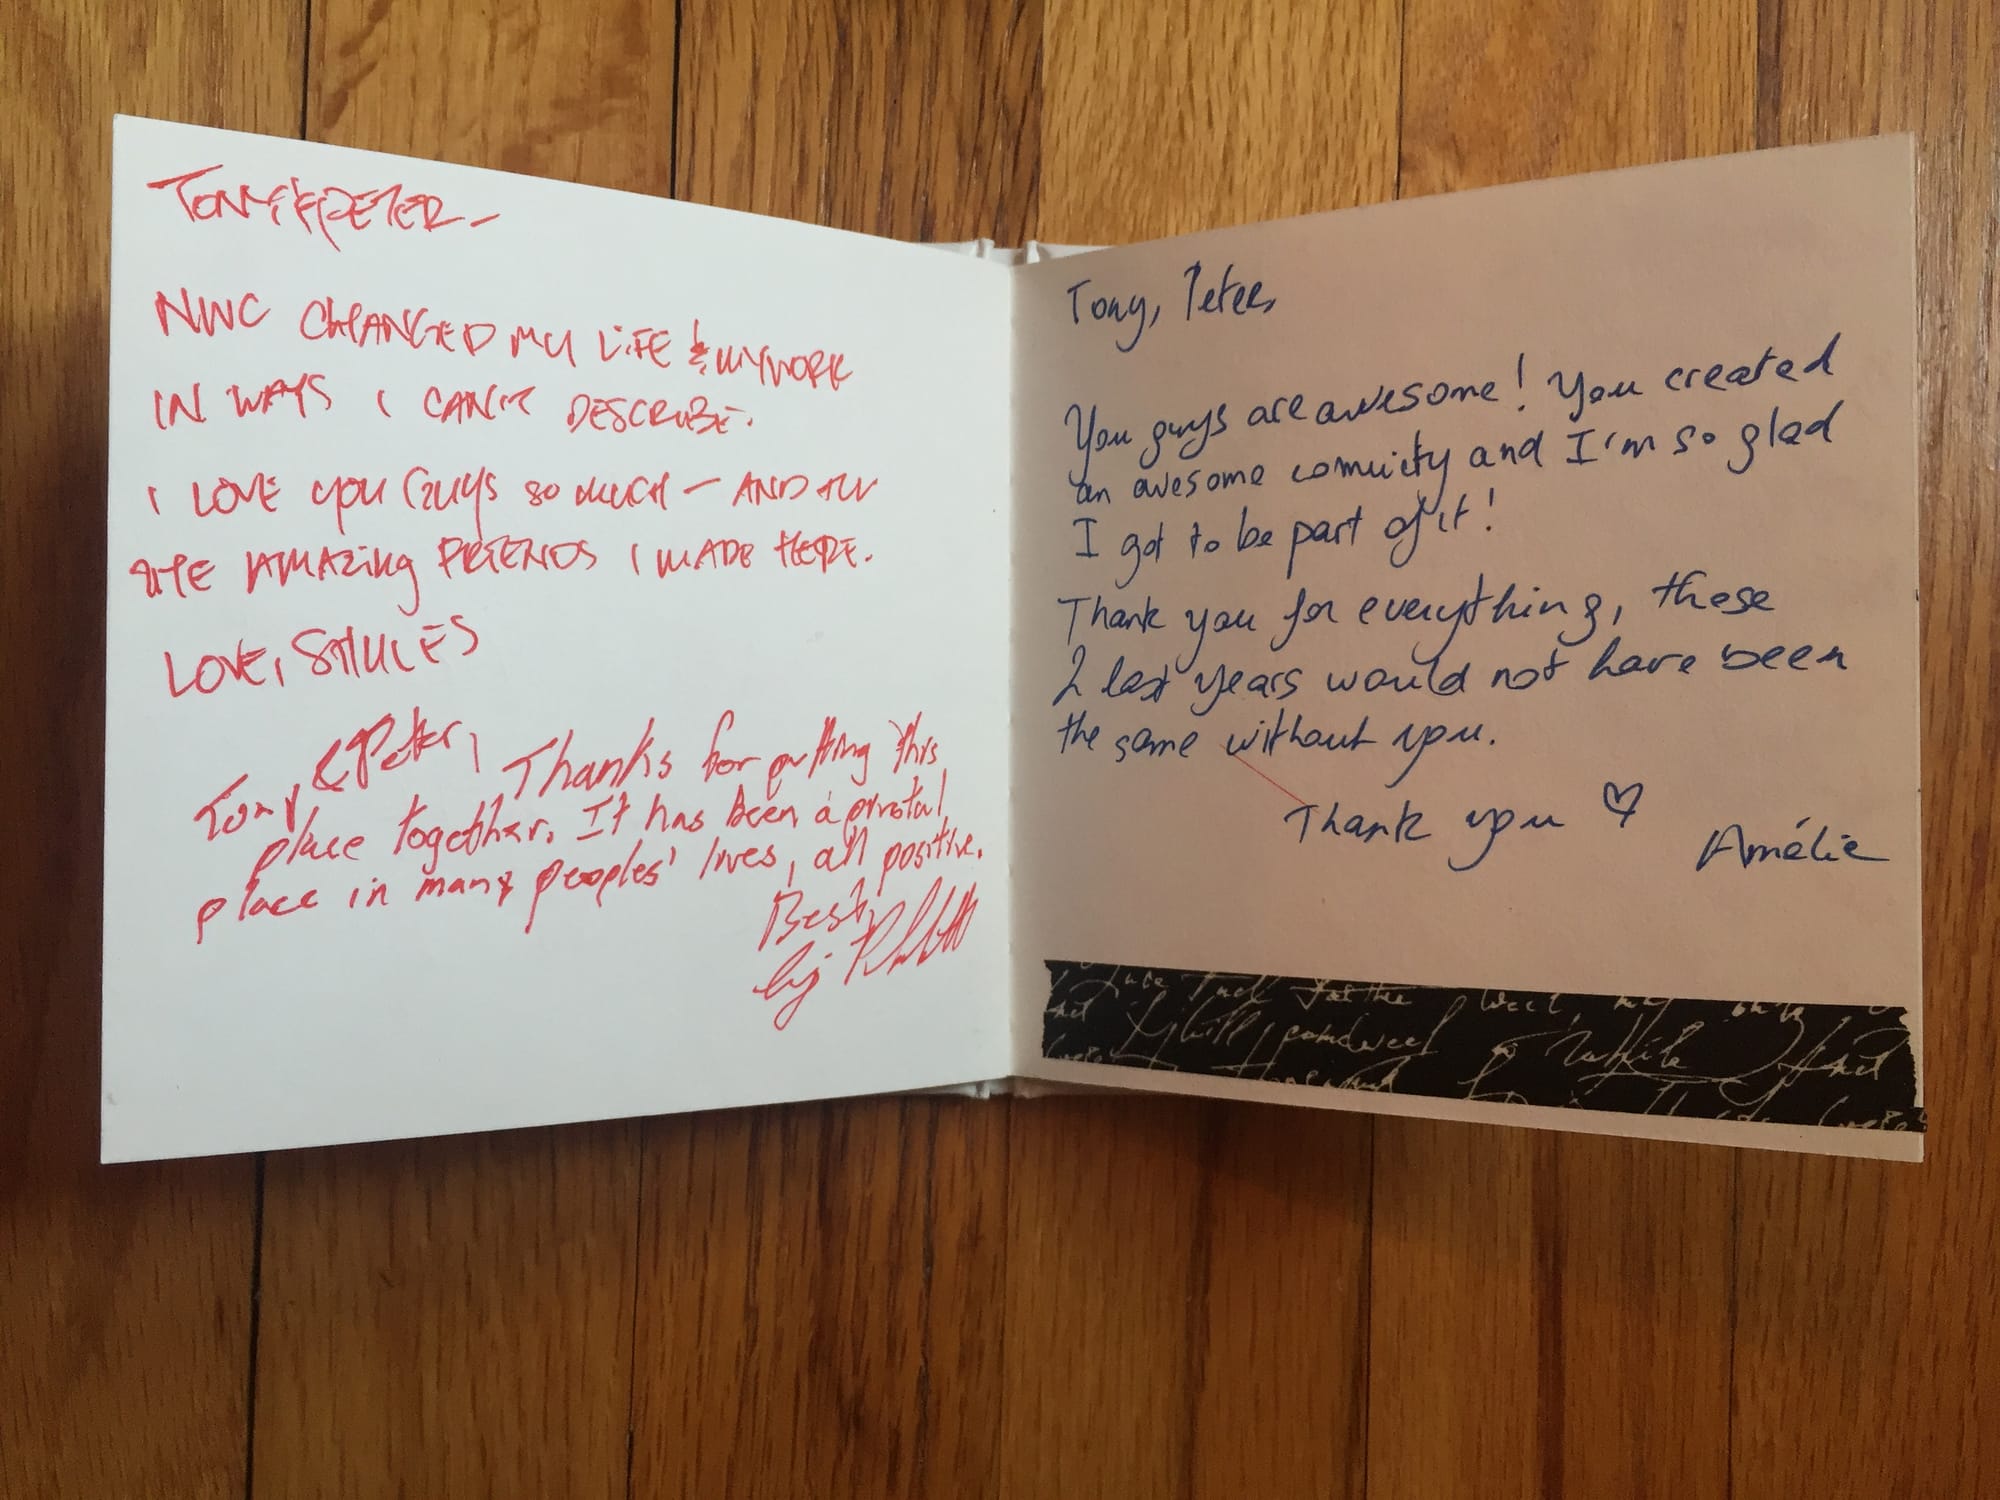 TONY & PETER -
NWC CHANGED MY LIFE & MY WORK
IN WAYS I CAN'T DESCRIBE.
I LOVE YOU GUYS SO MUCH - AND ALL
THE AMAZING FRIENDS I MADE HERE.
LOVE,
Tony & Peter, Thanks for putting this
place together. It has been a pivotal
place in many peoples' lives, all positive.
Best,
Tony, Peter,
You guys are awesome! You created
an awesome comunity and I'm so glad
I got to be part of it!
Thank you for everything, these
2 last years would not have been
the same without you.
Thank you ♡
Amélie